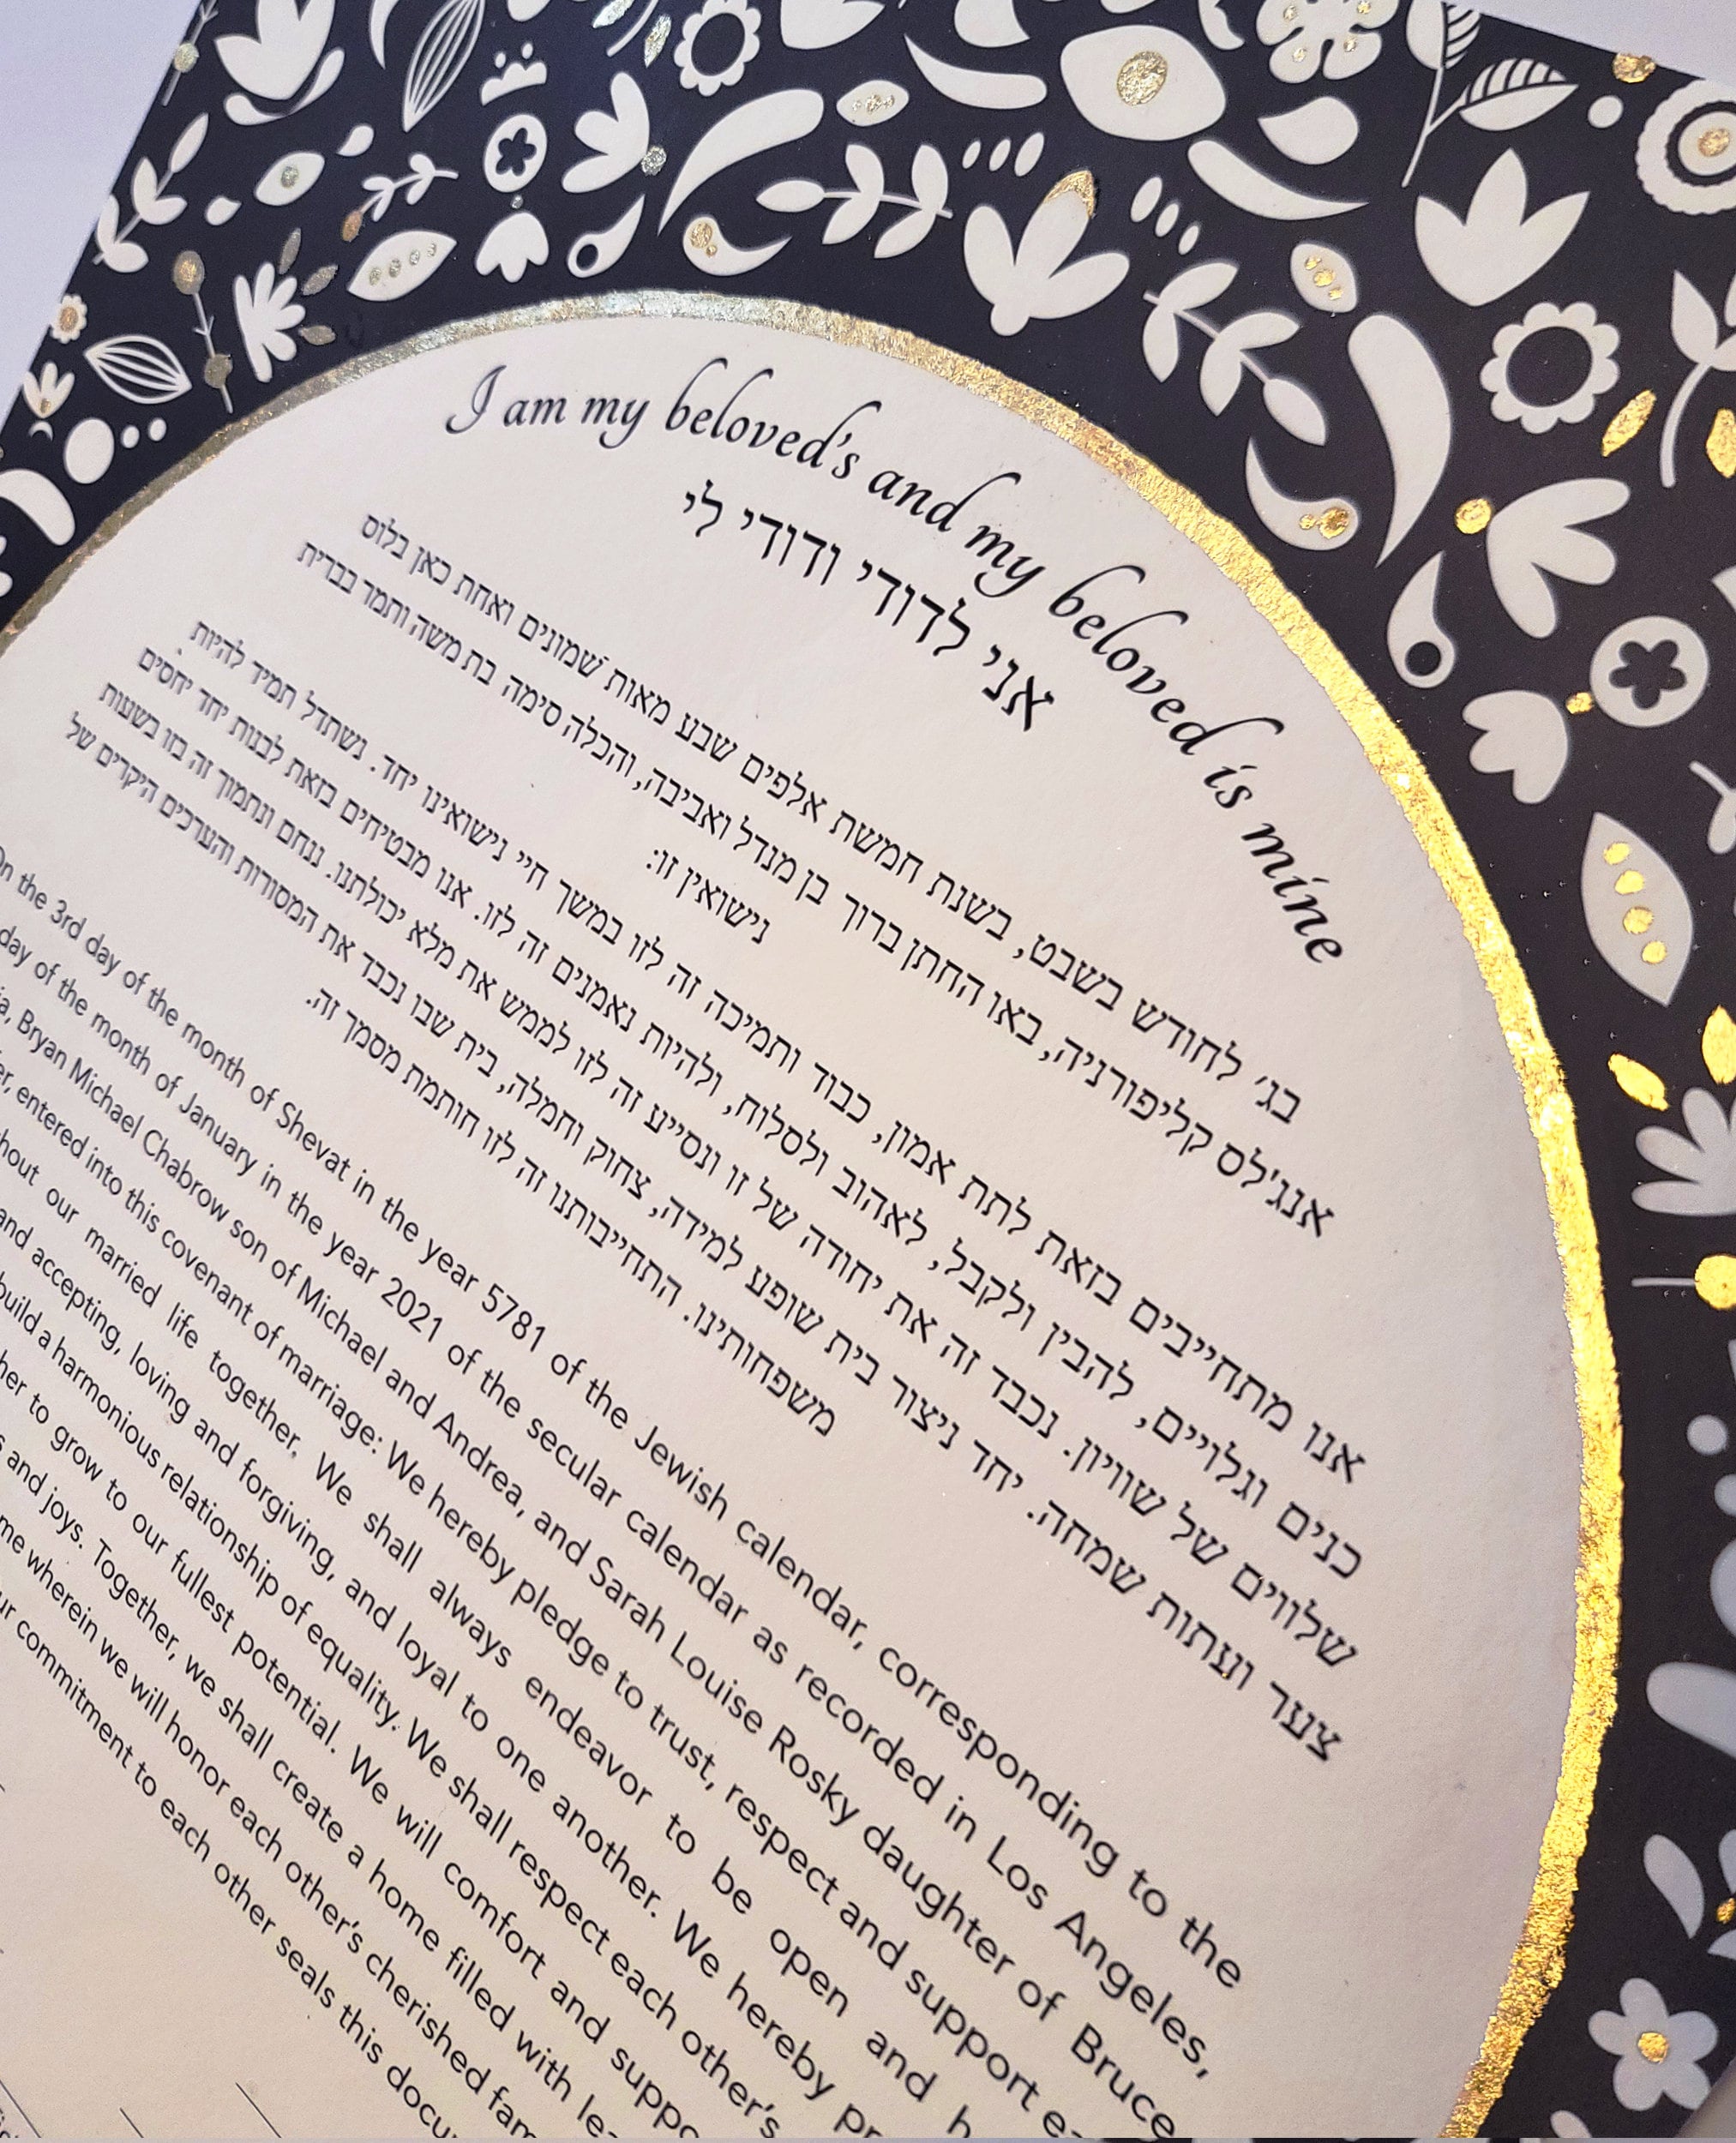 I am my beloved's and my beloved is mine
אני לדודי ודודי לי
בג' לחודש בשבט, בשנת חמשת אלפים שבע מאות שמונים ואחת כאן בלוס
אנג'לס קליפורניה, באו החתן ברוך בן מנדל ואביבה, והכלה סימה בת משה ותמר בברית
נישואין זו:
אנו מתחייבים בזאת לתת אמון, כבוד ותמיכה זה לזו במשך חיי נישואינו יחד. נשתדל תמיד להיות
כנים וגלויים, להבין ולקבל, לאהוב ולסלוח, ולהיות נאמנים זה לזו. אנו מבטיחים בזאת לבנות יחד יחסים
שלווים של שוויון. נכבד זה את יחודה של זו ונסייע זה לזו לממש את מלא יכולתנו. ננחם ונתמוך זה בזו בשעות
צער ועתות שמחה. יחד ניצור בית שופע למידה, צחוק וחמלה, בית שבו נכבד את המסורות והערכים היקרים של
משפחותינו. התחייבותנו זה לזו חותמת מסמך זה.
On the 3rd day of the month of Shevat in the year 5781 of the Jewish calendar, corresponding to the
day of the month of January in the year 2021 of the secular calendar as recorded in Los Angeles,
Bryan Michael Chabrow son of Michael and Andrea, and Sarah Louise Rosky daughter of Bruce
entered into this covenant of marriage: We hereby pledge to trust, respect and support
our married life together. We shall always endeavor to be open and
and accepting, loving and forgiving, and loyal to one another. We hereby
build a harmonious relationship of equality. We shall respect each other's
to grow to our fullest potential. We will comfort and
and joys. Together, we shall create a home filled with
wherein we will honor each other's cherished
commitment to each other seals this